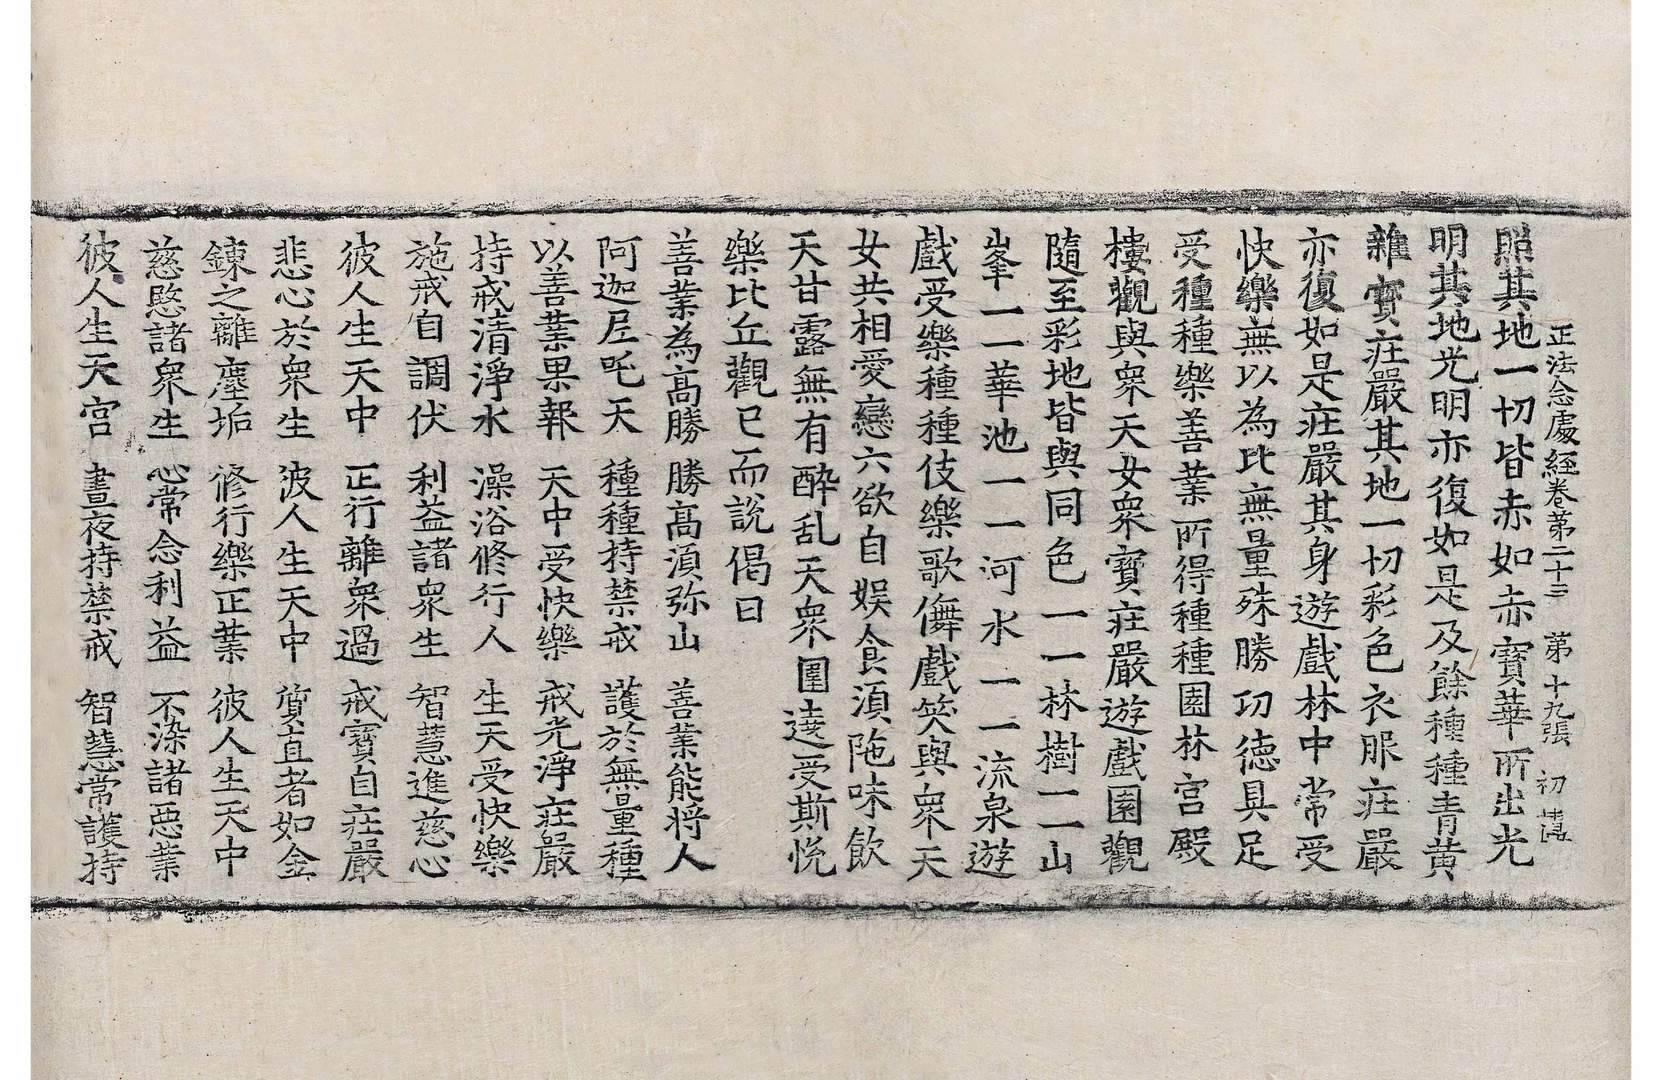 正法念處經卷第二十三 第十九張 初 慎
照其地一切皆赤如赤寶華所出光
明其地光明亦復如是及餘種種青黃
雜寶庄嚴其地一切彩色衣服庄嚴
亦復如是庄嚴其身遊戲林中常受
快樂無以為比無量殊勝功德具足
受種種樂善業所得種種園林宮殿
樓觀與衆天女衆寶庄嚴遊戲園觀
隨至彩地皆與同色一一林樹一一山
峯一一華池一一河水一一流泉遊
戲受樂種種伎樂歌儛戲笑與衆天
女共相愛戀六欲自娛食湏陁味飲
天甘露無有醉乱天衆圍遶受斯悅
樂比丘觀已而說偈曰
善業為髙勝 勝髙湏弥山 善業能將人
阿迦尼吒天 種種持禁戒 護於無量種
以善業果報 天中受快樂 戒光淨庄嚴
持戒清淨水 澡浴修行人 生天受快樂
施戒自調伏 利益諸衆生 智慧進慈心
彼人生天中 正行離衆過 戒寶自庄嚴
悲心於衆生 彼人生天中 質直者如金
鍊之離塵垢 修行樂正業 彼人生天中
慈愍諸衆生 心常念利益 不染諸惡業
彼人生天宮 晝夜持禁戒 智慧常護持